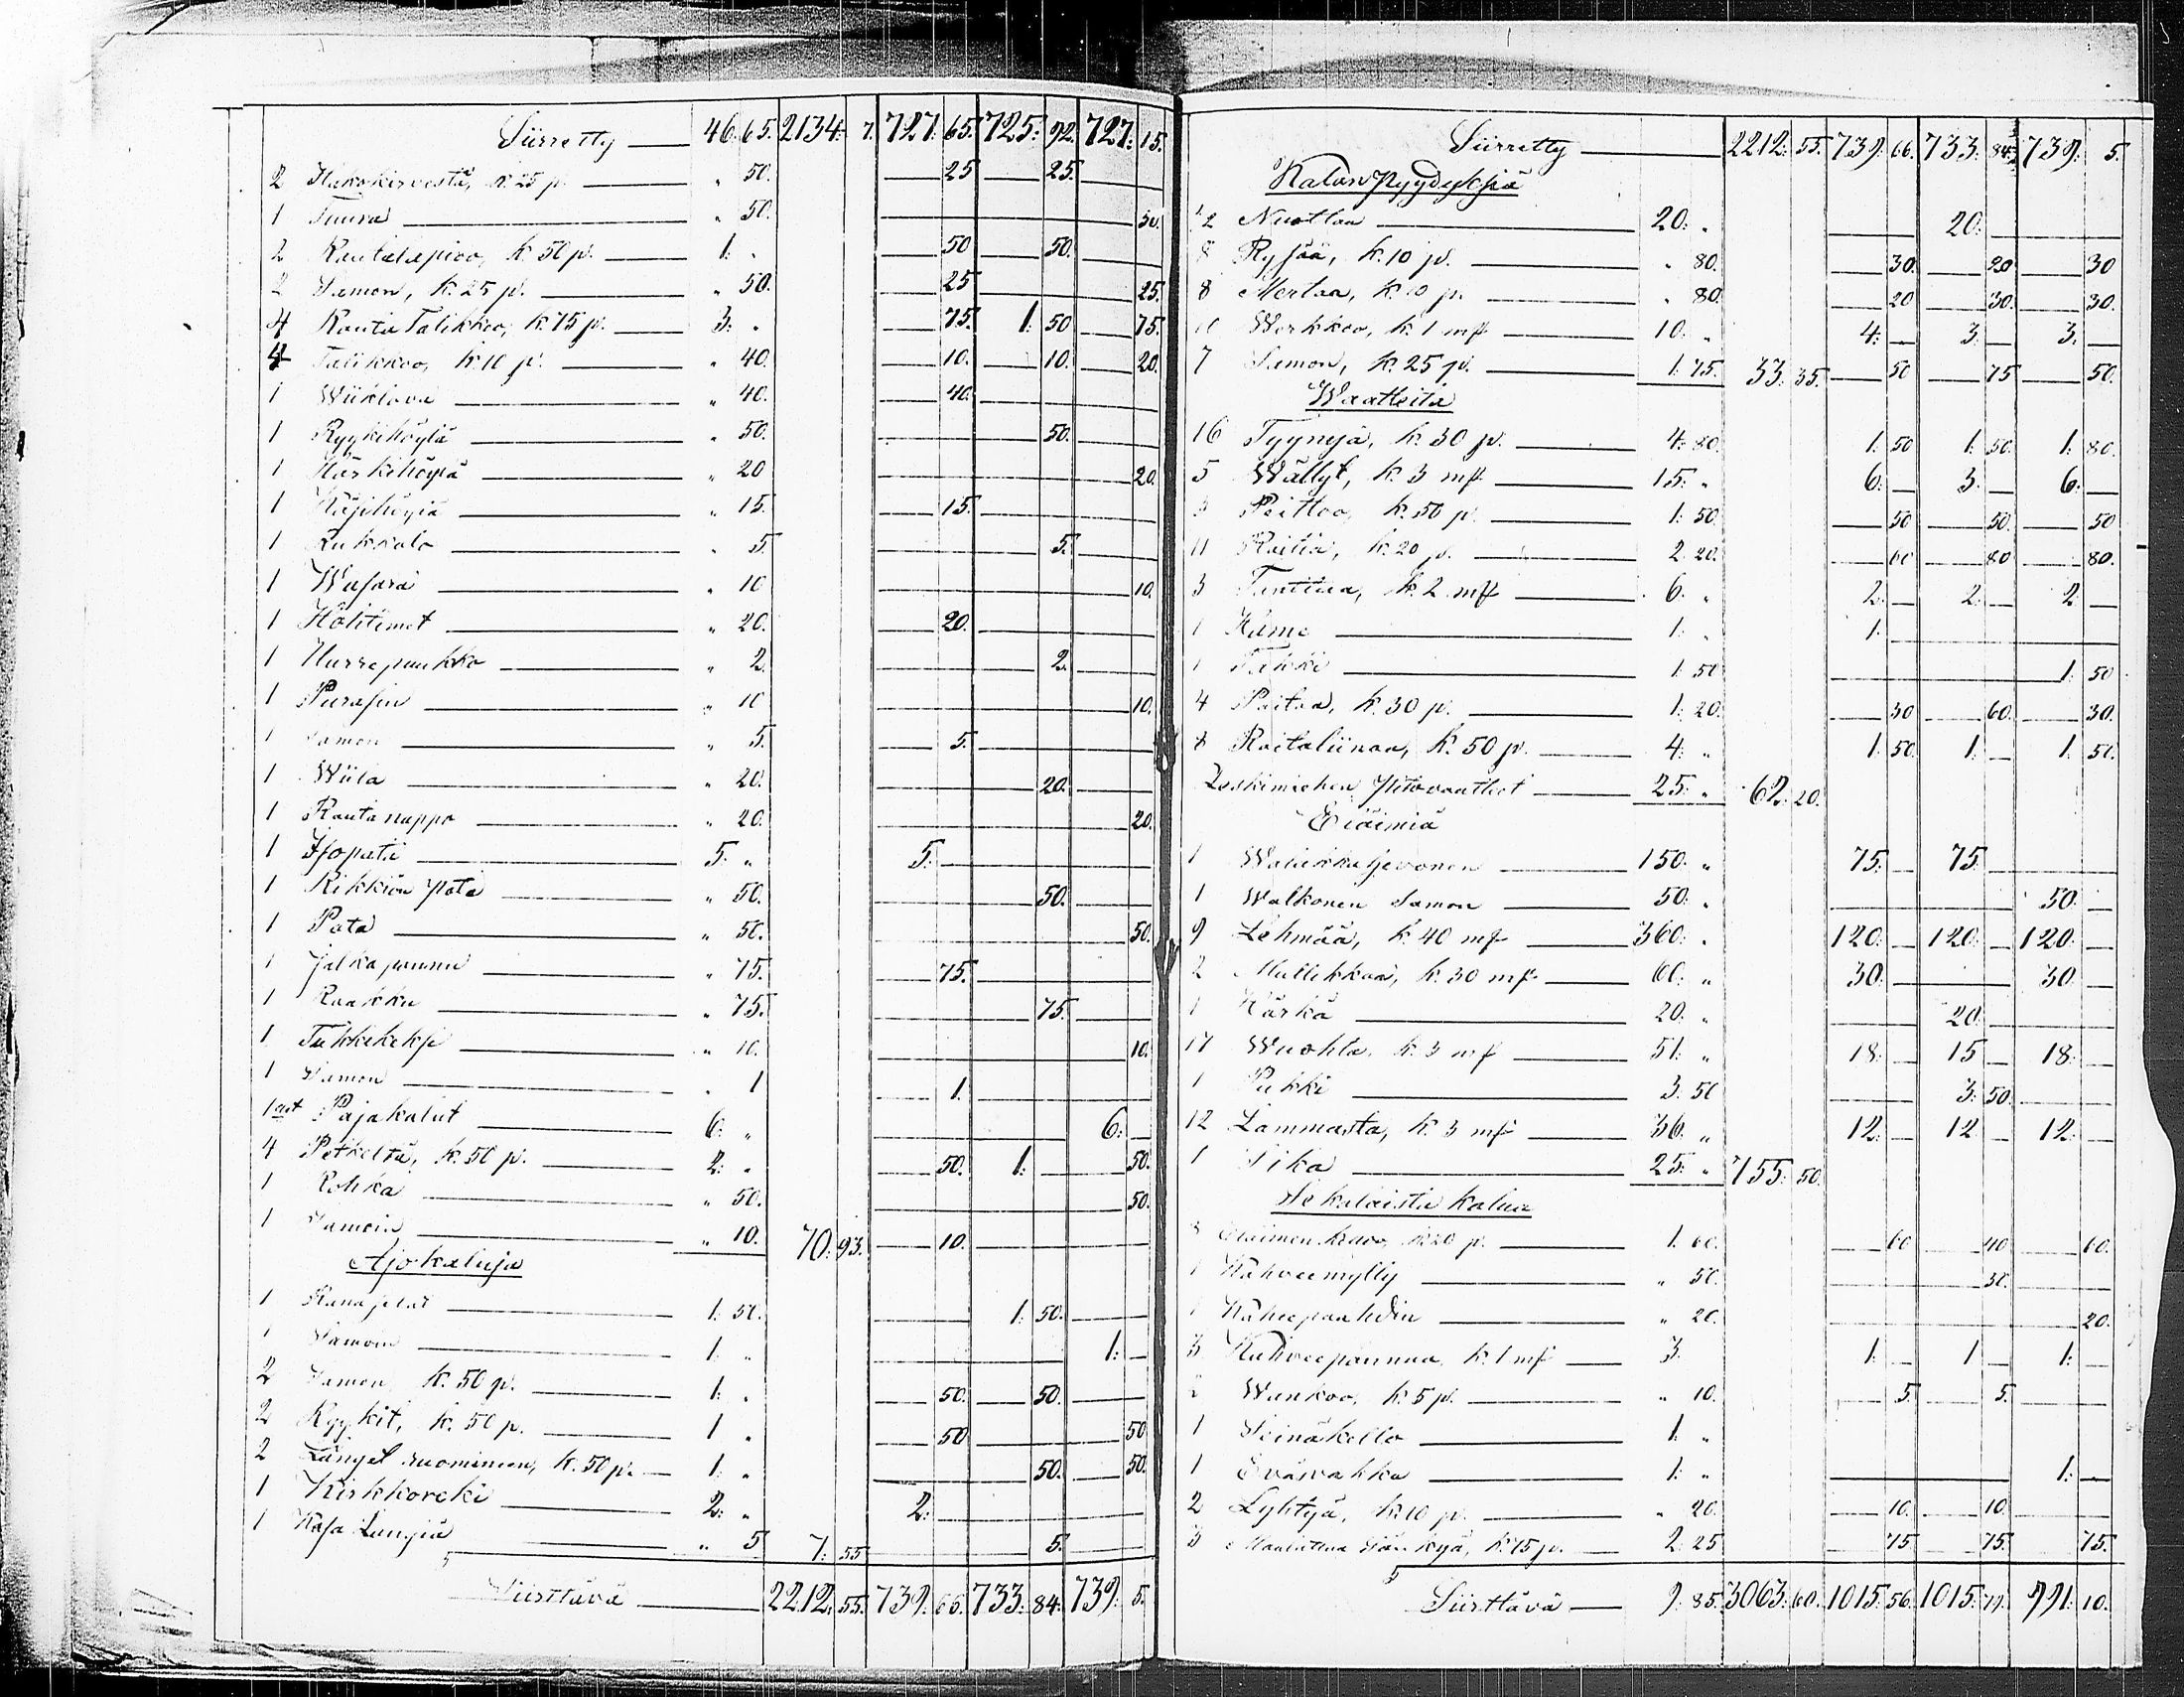 Siirretty 46. 65. 2134: 7. 727. 65. 725: 92. 727: 15.
2 Hakokirvestä, k. 25 p. „ 50. 25 25.
1 Tuura „ 50. 50.
2 Rautalapioo, k. 50 p. 1: „ 50 50.
2 Samon, k. 25 p. „ 50. 25 25.
4 Rauta Talikkoo, k. 75 p. 3: „ 75. 1: 50 75.
4 Talikkoo, k. 10 p. „ 40. 10. 10. 20.
1 „ 40. 40.
1 Ryykihöylä „ 50. 50.
1 Härkihöylä „ 20 20.
1 „ 15. 15.
1 „ 5. 5.
1 Wasara „ 10 10.
1 Hohtimet „ 20. 20.
1 „ 2. 2.
1 Purasin „ 10 10.
1 Samon „ 5. 5.
1 Wiila „ 20. 20.
1 Rautanappo „ 20. 20.
1 Isopata 5. „ 5.
1 Kikkiön pata „ 50. 50.
1 Pata „ 50. 50.
1 Jalkapannu „ 75. 75.
1 Raakku „ 75. 75.
1 Tukkikeksi „ 10. 10.
1 Samon „ 1 1.
1 Pajakalut 6: „ 6:
4 Petkeltä, k. 50 p. 2: „ 50. 1: 50.
1 Kohka „ 50. 50.
1 Samoin „ 10. 70. 93. 10.
Ajokaluja
1 1. 50. 1: 50.
1 Samoin 1: „ 1:
2 Samon k. 50 p. 1: „ 50. 50.
2 Kyykit, k. 50 p. 1 „ 50 50
2 Länget suomineen, k. 50 p. 1: „ 50. 50.
1 Kirkkoreki 2: „ 2:
1 „ 5 7: 55 5.
Siirttävä 2212. 55. 739. 66. 733: 84. 739: 5.
Siirretty 2212: 55. 739: 66. 733: 84. 739: 5.
Kalanpyydyksiä
1/2 Nuottaa 20: „ 20:
8 Rysää, k. 10 p. „ 80. 30. 20 30
8 Mertaa, k. 10 p. „ 80. 20 30. 30.
10 Werkkoo, k. 1 mk 10: „ 4: 3: 3:
7 Samon, k. 25 p. 1: 75. 33: 35. 50 75 50.
Waatteita
16 Tyynyjä, k. 30 p. 4: 80. 1: 50 1: 50. 1: 80.
5 Wällyt, k. 3 mk 15: „ 6: 3: 6:
3 Peittoo, k. 50 p. 1: 50. 50 50. 50
11 Raitia, k. 20 p. 2. 20. 60 80 80.
3 k. 2 mk 6: „ 2: 2: 2
1 Hame 1: „ 1:
1 Takki 1: 50 1: 50
4 Paitaa, k. 30 p. 1: 20. 30 60. 30.
8 Kaitaliinaa, k. 50 p. 4: „ 1: 50. 1: 1: 50.
Leskimiehen Pitovaatteet 25: „ 62: 20.
Eläimiä
1 Walakkahevonen 150: „ 75: 75.
1 Walkonen Samon 50: „ 50:
9 Lehmää, k. 40 mk 360: „ 120: 120: 120:
2 Mullikkaa, k. 30 mk 60: „ 30: 30:
1 Härkä 20: „ 20:
17 Wuohta, k. 3 mk 51: „ 18: 15 18:
1 Pukki 3: 50 3: 50.
12 Lammasta, k. 3 mk 36. „ 12: 12 12:
1 Sika 25: „ 755: 50.
Sekalaista kalua
8 k. 20 p. 1: 60. 60 40 60.
1 Kahveemylly „ 50. 50.
1 Kahveepaahdin „ 20. 20.
3 Kahveepannua k. 1 mk 3. 1: 1 1:
2 k. 5 p. „ 10. 5. 5.
1 Seinäkello 1: „
1 Eväwakka 1: „ 1:
2 Lyhtyä, k. 10 p. „ 20. 10. 10.
3 k. 75 p. 2: 25 75 75. 75.
Siirttävä 9: 85. 3063: 60. 1015: 56. 1015: 991: 10.